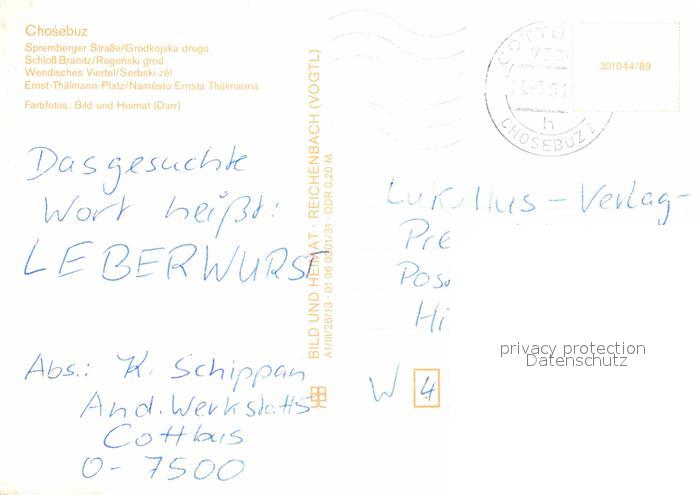 Chośebuz
Spremberger Straße/Grodkojska droga
Schloß Branitz/Rogeński grod
Wendisches Viertel/Serbski źěl
Ernst-Thälmann-Platz/Naměsto Ernsta Thälmanna
Farbfotos: Bild und Heimat (Darr)
Das gesuchte
Wort heißt:
LEBERWURST
Abs.: K. Schippan
And. Werkstatts
Cottbus
O-7500
BILD UND HEIMAT · REICHENBACH (VOGTL)
A1/III/26/13 · 01 06 0301/31 · DDR 0,20 M
COTTB
h
CHOSEBUZ 2
301044/89
Lukullus-Verlag-
Pre
Pos
Hi
W 4
privacy protection
Datenschutz